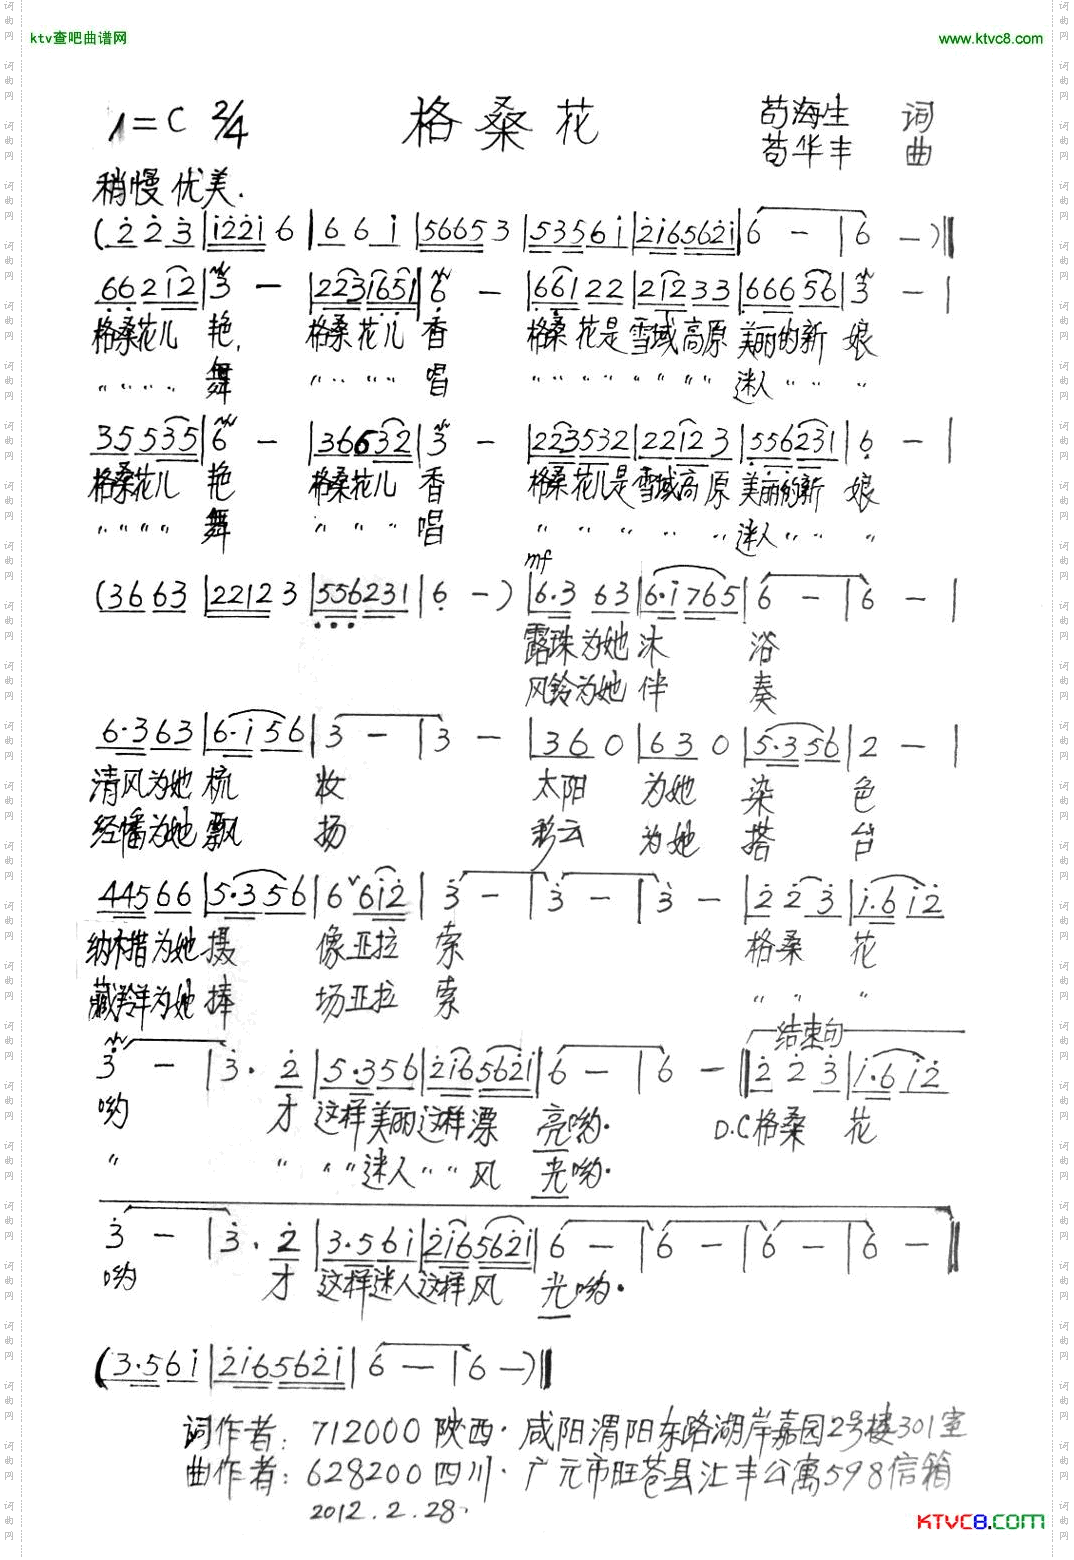 ktv查吧曲谱网 www.ktvc8.com
1=C 2/4 格桑花 苟海生 词
苟华丰 曲
稍慢 优美.
(2 2 3 | 1221 6 | 6 6 1 | 5665 3 | 5356 1 | 216 5621 | 6 — | 6 —)‖
66 212 | 3 — | 223 1651 | 6 — | 661 22 | 212 33 | 666 56 | 3 — |
格桑花儿 艳, 格桑花儿 香 格桑花是雪域高原 美丽的新 娘
〃〃〃〃 舞 〃〃〃〃 唱 〃〃〃〃〃〃〃〃 迷人〃〃 〃
35 535 | 6 — | 366 32 | 3 — | 223 532 | 2212 3 | 556 231 | 6 — |
格桑花儿 艳 格桑花儿 香 格桑花儿是雪域高原 美丽的新 娘
〃〃〃〃 舞 〃〃〃 唱 〃〃〃〃〃 迷人〃〃 〃
mf
(36 63 | 2212 3 | 556 231 | 6 —) | 6·3 63 | 6·1 765 | 6 — | 6 — |
露珠为她 沐 浴
风铃为她 伴 奏
6·3 63 | 6·1 56 | 3 — | 3 — | 36 0 | 63 0 | 5·3 56 | 2 — |
清风为她 梳 妆 太阳 为她 染 色
经幡为她 飘 扬 彩云 为她 搭 台
445 66 | 5·3 56 | 6 ∨ 612 | 3 — | 3 — | 3 — | 2 2 3 | 1·6 12
纳木措为她 摄 像亚拉 索 格桑 花
藏羚羊为她 捧 场亚拉 索 〃 〃 〃
结束句
3 — | 3· 2 | 5·3 56 | 216 5621 | 6 — | 6 — ‖ 2 2 3 | 1·6 12
哟 才 这样美丽这样漂 亮哟. D.C格桑 花
〃 〃 〃〃迷人〃〃风 光哟.
3 — | 3· 2 | 3·56 1 | 216 5621 | 6 — | 6 — | 6 — | 6 — ‖
哟 才 这样迷人这样风 光哟.
(3·56 1 | 216 5621 | 6 — | 6 —)‖
词作者: 712000 陕西·咸阳渭阳东路湖岸嘉园2号楼301室
曲作者: 628200 四川·广元市旺苍县汇丰公寓598信箱
2012.2.28.
KTVC8.COM